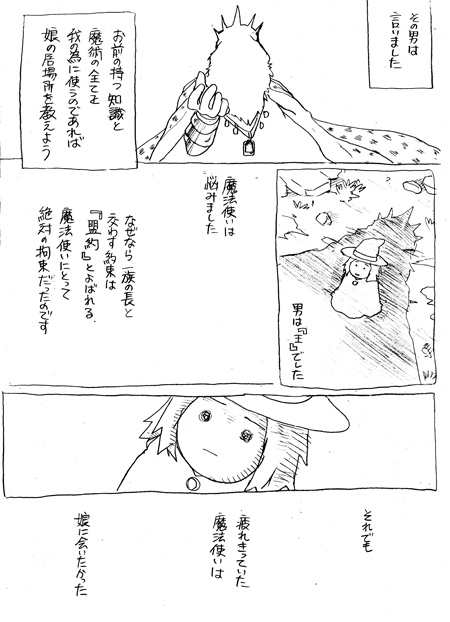 その男は
言いました
お前の持つ知識と
魔術の全てを
我の為に使うのであれば
娘の居場所を教えよう
男は『王』でした
魔法使いは
悩みました
なぜなら一族の長と
交わす約束は
『盟約』とよばれる、
魔法使いにとって
絶対の拘束だったのです
それでも
疲れきっていた
魔法使いは
娘に会いたかった